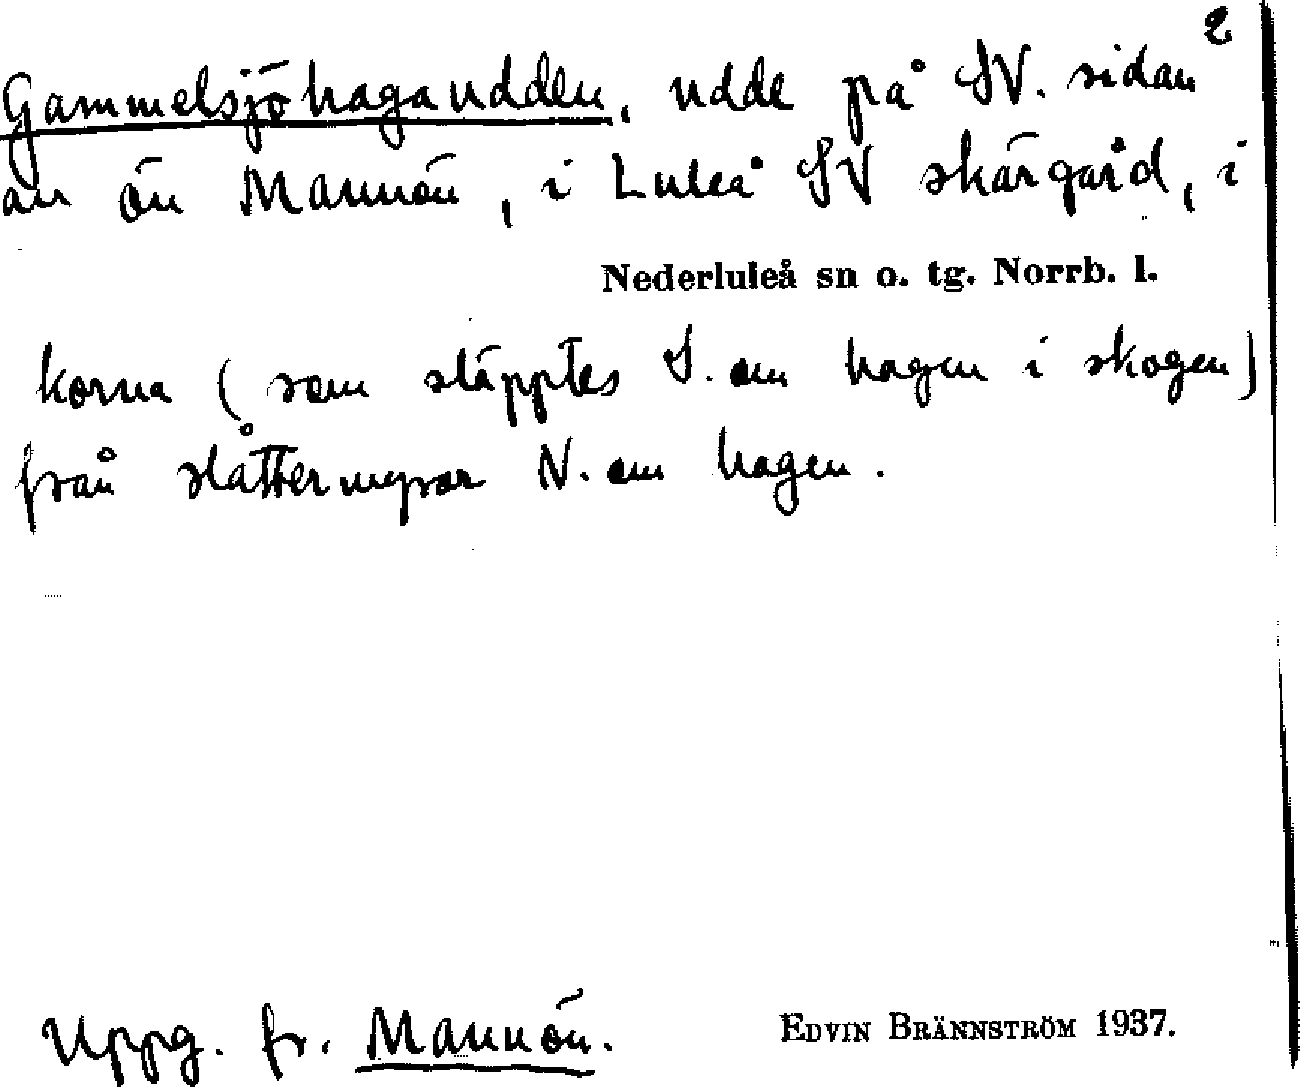 2
Gammelsjöhagaudden, udde på SV. sidan
av ön Mannön, i Luleå SV skärgård, i
Nederluleå sn o. tg. Norrb. l.
korna (som släpptes S. om hagen i skogen)
från slåttermyrar N. om hagen.
Uppg. fr. Mannön.
EDVIN BRÄNNSTRÖM 1937.